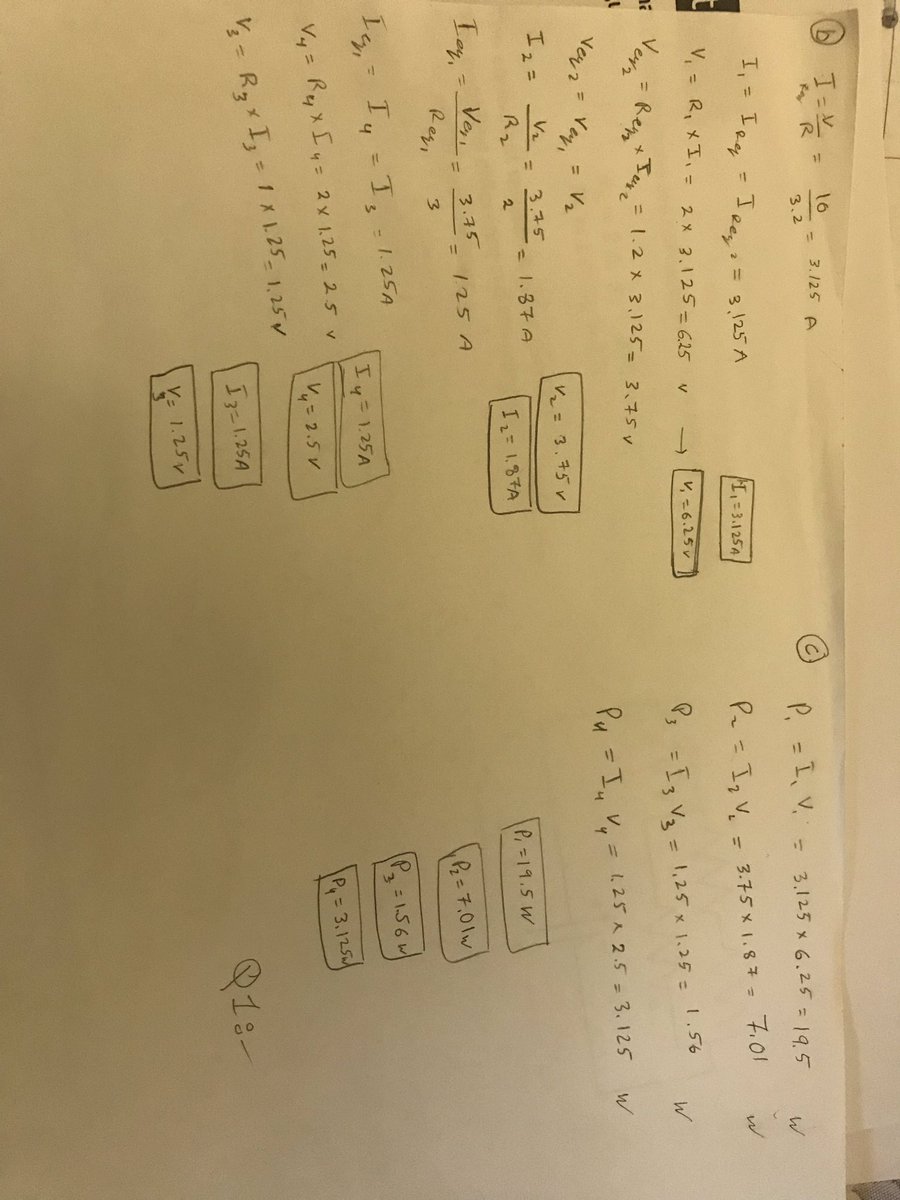 (b) I_Req = V/R = 10/3.2 = 3.125 A
I₁ = I_Req = I_Req₂ = 3.125 A
I₁ = 3.125A
V₁ = R₁ × I₁ = 2 × 3.125 = 6.25 V → V₁ = 6.25V
Veq₂ = Req₂ × Ieq₂ = 1.2 × 3.125 = 3.75 V
Veq₂ = Veq₁ = V₂
V₂ = 3.75 V
I₂ = V₂/R₂ = 3.75/2 = 1.87 A
I₂ = 1.87A
Ieq₁ = Veq₁/Req₁ = 3.75/3 = 1.25 A
Ieq₁ = I₄ = I₃ = 1.25A
I₄ = 1.25A
V₄ = R₄ × I₄ = 2 × 1.25 = 2.5 V
V₄ = 2.5 V
V₃ = R₃ × I₃ = 1 × 1.25 = 1.25 V
I₃ = 1.25A
V₃ = 1.25V
(c) P₁ = I₁ V₁ = 3.125 × 6.25 = 19.5 W
P₂ = I₂ V₂ = 3.75 × 1.87 = 7.01 W
P₃ = I₃ V₃ = 1.25 × 1.25 = 1.56 W
P₄ = I₄ V₄ = 1.25 × 2.5 = 3.125 W
P₁ = 19.5 W
P₂ = 7.01W
P₃ = 1.56 W
P₄ = 3.125W
Q1:-